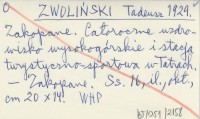 O
ZWOLIŃSKI Tadeusz 1929.
Zakopane. Całoroczne uzdro-
wisko wysokogórskie i stacja
turystyczno-sportowa w Tatrach.
- Zakopane. Ss. 16, il., okł.,
cm 20 x 14. WHP
/2158